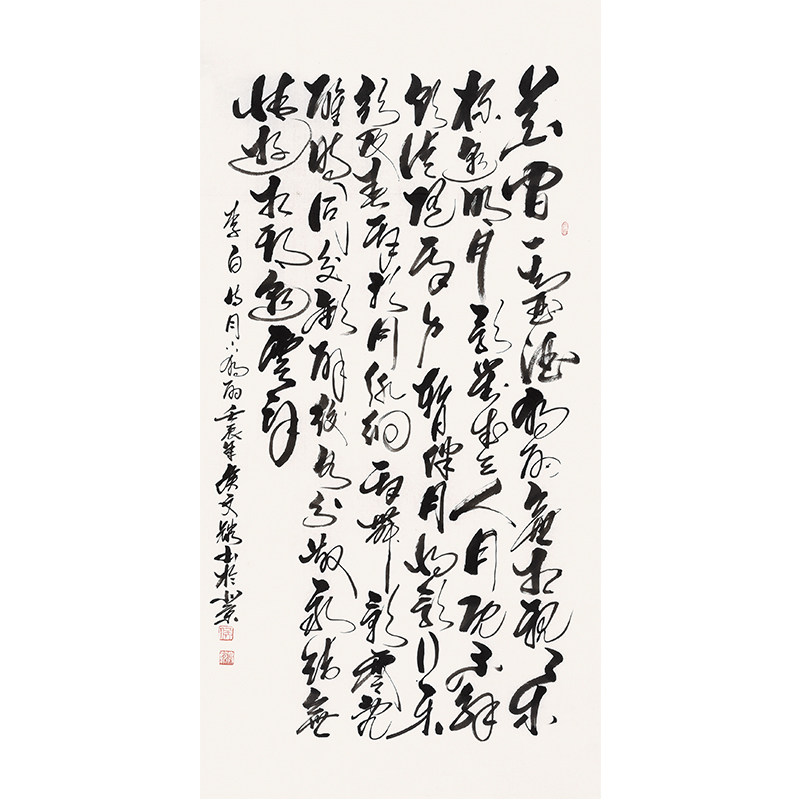 花間一壺酒獨酌無相親舉
杯邀明月影對成三人月既不解
飲徒隨我身暫伴月將影行樂
須及春我歌月徘徊我舞影零亂
醒時同交歡醉後各分散永結無
情遊相期邈雲漢
李白詩月下獨酌壬辰年文書於北京